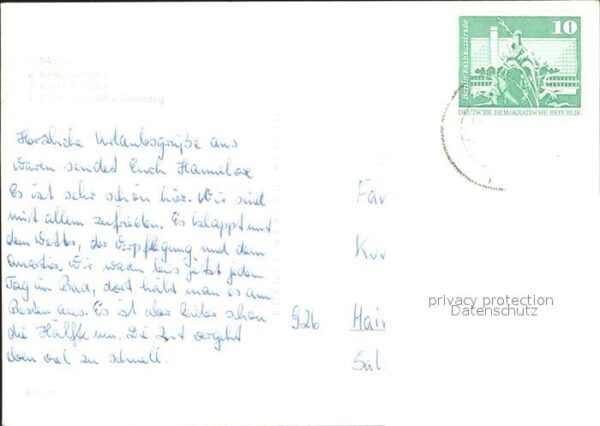 10
Berlin, Rathausstraße
DEUTSCHE DEMOKRATISCHE REPUBLIK
Herzliche Urlaubsgrüße aus
Waren sendet Euch Hannelore
Es ist sehr schön hier. Wir sind
mit allem zufrieden. Es klappt mit
dem Wetter, der Verpflegung und dem
Quartier. Wir waren bis jetzt jeden
Tag im Bad, dort hält man es am
Besten aus. Es ist aber leider schon
die Hälfte um. Die Zeit vergeht
eben viel zu schnell.
Fa
Ku
926 Hai
privacy protection
Datenschutz